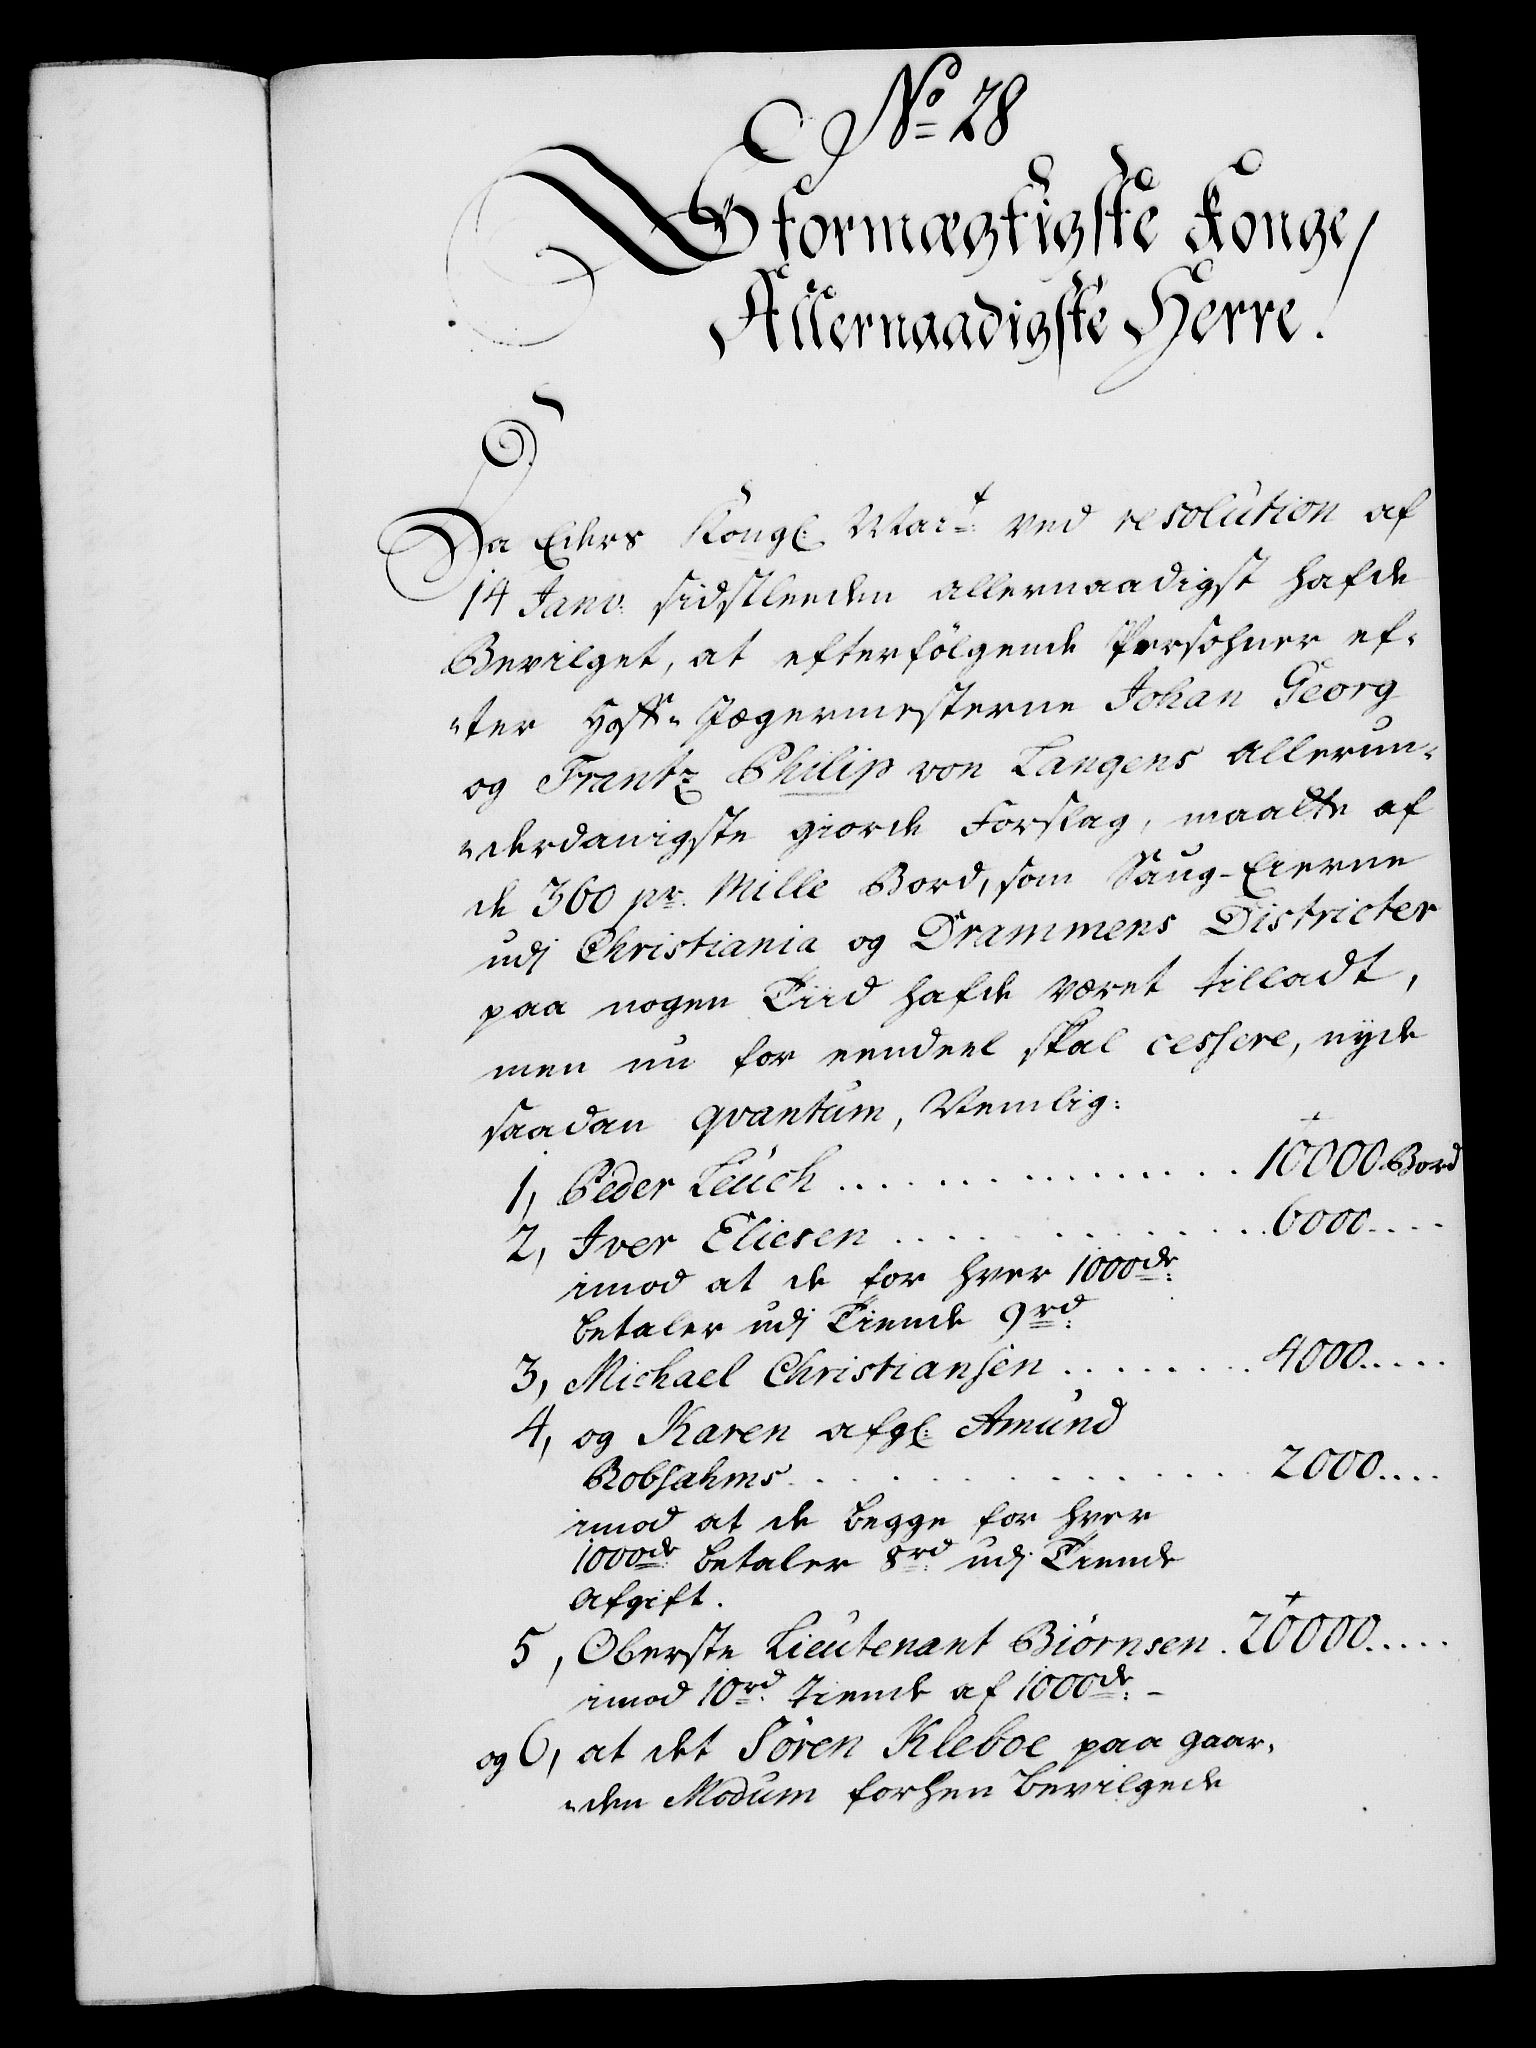 No 28
Stormægtigste Konge/
Allernaadigste Herre!
Da Eders Kongl: Mait: ved resolution af
14 Janv: sidstleeden allernaadigst hafde
Bevilget, at efterfölgende Persohner ef-
-ter Hoff-Jægermesterne Johan Georg
og Frantz Philip von Langens allerun-
-derdanigste giorde Forslag, maatte af
de 360 pr. Mille Bord, som Saug-Eierne
udj Christiania og Drammens Districter
paa nogen Tiid hafde været tilladt,
men nu for eendeel skal cessere, nyde
saadan qvantum, Nemlig:
1, Peder Leuch .............. 10000 Bord
2, Iver Eliesen .............. 6000....
imod at de for hver 1000de:
betaler udj Tiende 9rd:
3, Michael Christiansen ........ 4000.....
4, og Karen afgl: Amund
Robsahms .............. 2000....
imod at de begge for hver
1000de: betaler 8rd: udj Tiende
Afgift.
5, Oberste Lieutenant Biörnsen. 20000.....
imod 10rd: Tiende af 1000de: -
og 6, at det Sören Kleboe paa gaar-
-den Modum forhen bevilgede